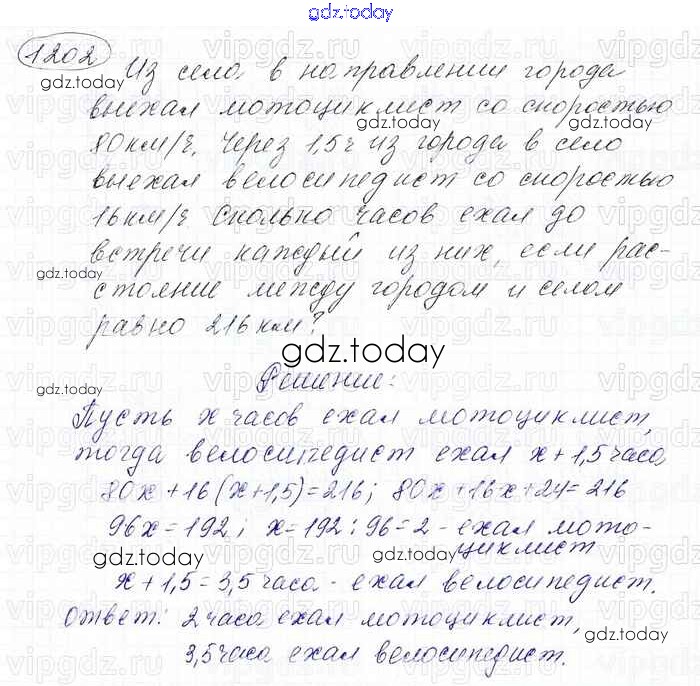 gdz.today
1202 Из села в направлении города
gdz.today
выехал мотоциклист со скоростью
gdz.today
80км/ч. Через 1,5ч из города в село
gdz.today
выехал велосипедист со скоростью
16км/ч. Сколько часов ехал до
встречи каждый из них, если рас-
gdz.today
стояние между городом и селом
равно 216км?
gdz.today
Решение:
gdz.today
Пусть x часов ехал мотоциклист,
тогда велосипедист ехал x+1,5часа
80x+16(x+1,5)=216; 80x+16x+24=216
96x=192; x=192:96=2 - ехал мото-
gdz.today
циклист
gdz.today
x+1,5=3,5часа - ехал велосипедист.
Ответ: 2часа ехал мотоциклист,
gdz.today
3,5часа ехал велосипедист.